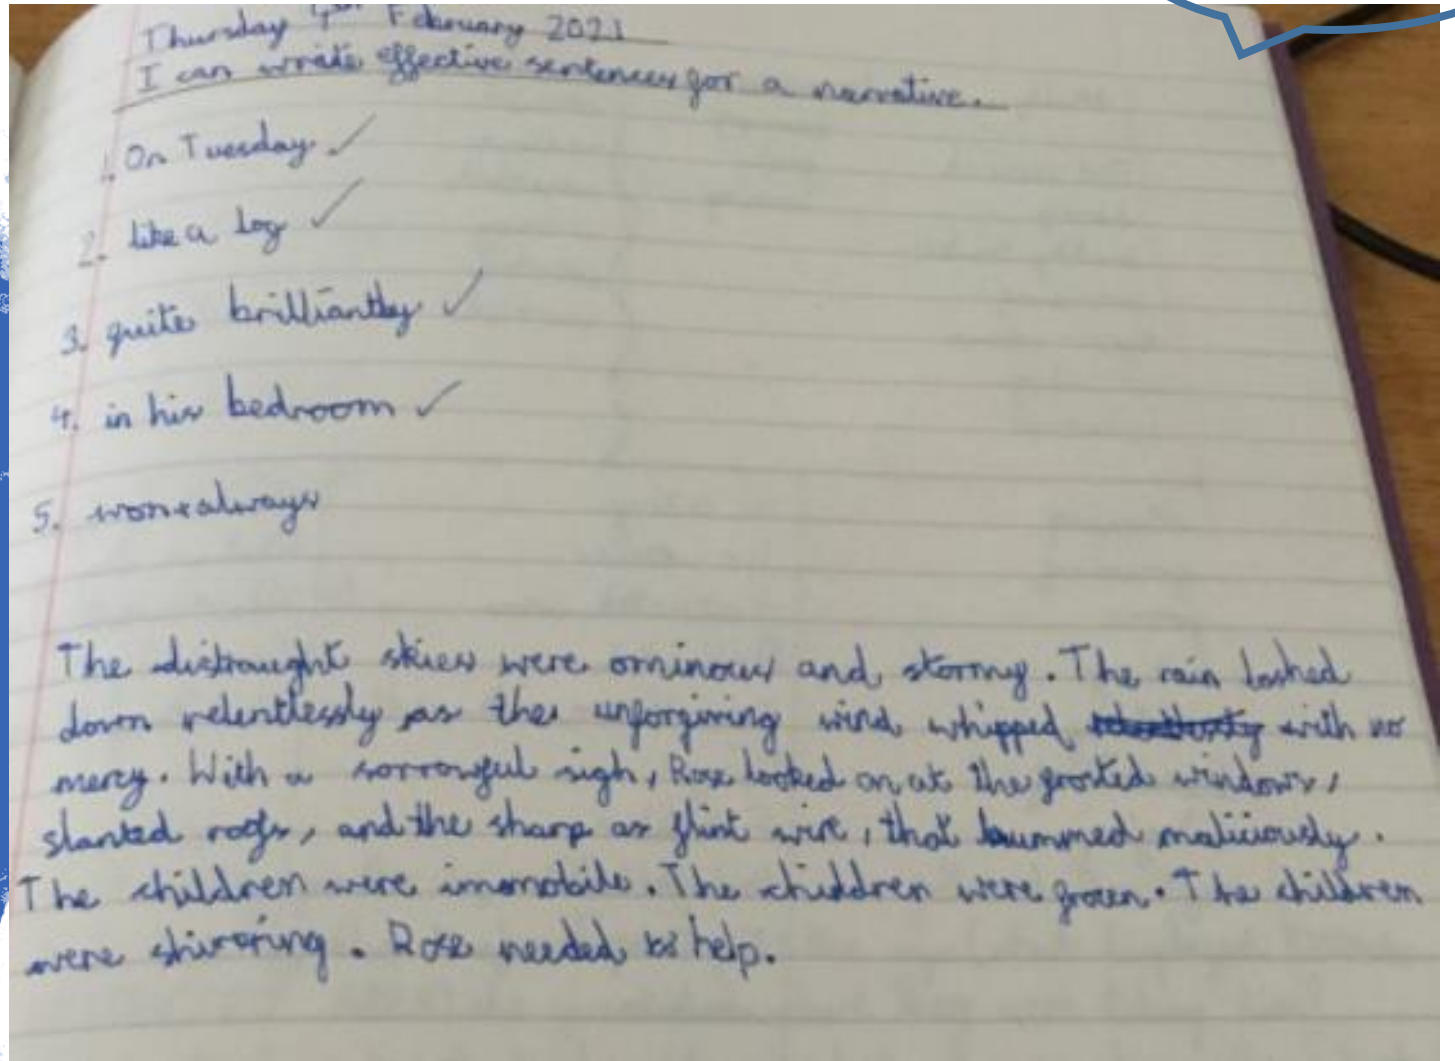 Thursday 4th February 2021
I can write effective sentences for a narrative.
1. On Tuesday ✓
2. like a log ✓
3. quite brilliantly ✓
4. in his bedroom ✓
5. always
The distraught skies were ominous and stormy. The rain lashed
down relentlessly as the unforgiving wind whipped with no
mercy. With a sorrowful sigh, Rose looked on at the frosted windows,
slanted roofs, and the sharp as flint wire, that hummed maliciously.
The children were immobile. The children were frozen. The children
were shivering. Rose needed to help.